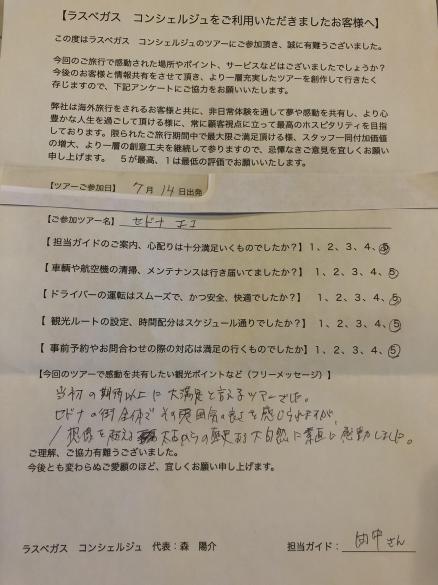 【ラスベガス　コンシェルジュをご利用いただきましたお客様へ】
この度はラスベガス　コンシェルジュのツアーにご参加頂き、誠に有難うございました。
今回のご旅行で感動された場所やポイント、サービスなどはございましたでしょうか？
今後のお客様と情報共有をさせて頂き、より一層充実したツアーを創作して行きたく
存じますので、下記アンケートにご協力をお願いいたします。
弊社は海外旅行をされるお客様と共に、非日常体験を通して夢や感動を共有し、より心
豊かな人生を過ごして頂ける様に、常に顧客視点に立って最高のホスピタリティを目指
しております。限られたご旅行期間中で最大限ご満足頂ける様、スタッフ一同付加価値
の増大、より一層の創意工夫を継続して参りますので、忌憚なきご意見を宜しくお願い
申し上げます。　５が最高、１は最低の評価でお願いいたします。
【ツアーご参加日】　7月 14日出発
【ご参加ツアー名】　セドナ
【担当ガイドのご案内、心配りは十分満足いくものでしたか？】1、2、3、4、⑤
【車輌や航空機の清掃、メンテナンスは行き届いてましたか？】1、2、3、4、⑤
【ドライバーの運転はスムーズで、かつ安全、快適でしたか？】　1、2、3、4、⑤
【 観光ルートの設定、時間配分はスケジュール通りでしたか？】　1、2、3、4、⑤
【 事前予約やお問合わせの際の対応は満足の行くものでしたか】　1、2、3、4、⑤
【今回のツアーで感動を共有したい観光ポイントなど（フリーメッセージ）】
当初の期待以上に大満足と言えるツアーでした。
セドナの街全体でその雰囲気の良さを感じられますが、
想像を超える 太古からの歴史ある大自然に素直に感動しました。
ご理解、ご協力有難うございました。
今後とも変わらぬご愛顧のほど、宜しくお願い申し上げます。
ラスベガス　コンシェルジュ　代表：森　陽介　　担当ガイド：　田中さん